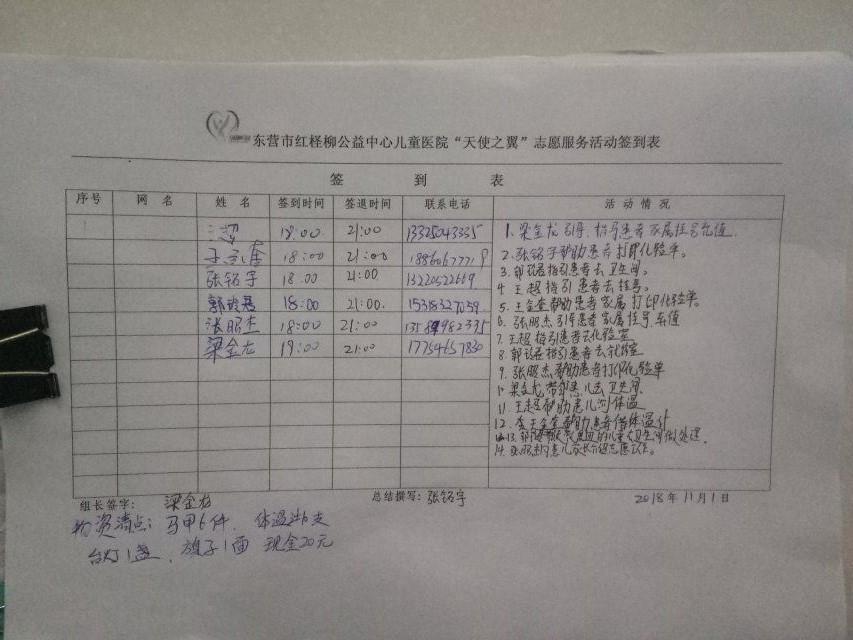 东营市红柽柳公益中心儿童医院“天使之翼”志愿服务活动签到表
签 到 表
序号 网 名 姓 名 签到时间 签退时间 联系电话 活 动 情 况
王超 18:00 21:00 13325043335
18:00 21:00
张铭宇 18:00 21:00 13220522669
18:00 21:00 15318327039
张照杰 18:00 21:00
梁金龙 19:00 21:00 17754657830
1. 梁金龙引导、指导患者家属挂号充值.
2. 张铭宇帮助患者打印化验单。
3. 指引患者去卫生间。
4 王超指引患者去挂号。
5. 帮助患者家属打印化验单。
6. 张照杰引导患者家属挂号、充值
7. 王超指引患者去化验室
8. 指引患者去化验室
9. 张照杰帮助患者打印化验单
梁金龙带领患儿去卫生间
11. 王超帮助患儿测体温
12. 帮助患者借体温计
13. 儿童去卫生间做处理.
14.
组长签字: 梁金龙 总结撰写: 张铭宇 2018年11月1日
物资清点: 马甲6件、体温计6支
台灯1盏、旗子1面 现金20元